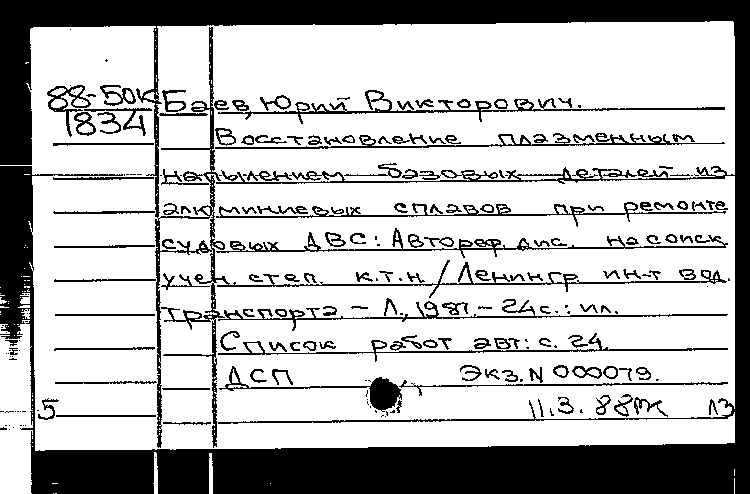 88-50к Баев, Юрий Викторович.
1834
Восстановление плазменным
напылением базовых деталей из
алюминиевых сплавов при ремонте
судовых ДВС: Автореф. дис. на соиск.
учен. степ. к.т.н. / Ленингр. ин-т вод.
транспорта. - Л., 1987. - 24 с.: ил.
Список работ авт.: с. 24.
ДСП Экз. N 000079.
5 11.3.88